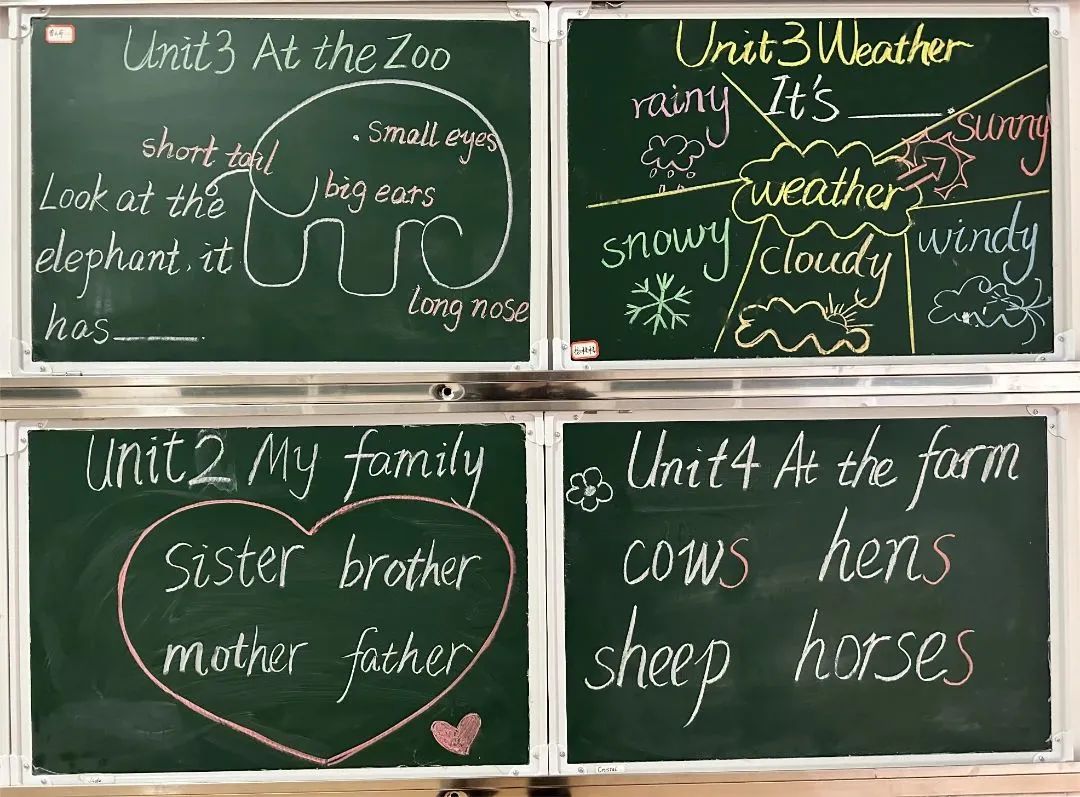 Unit3 At the Zoo
short tail
small eyes
big ears
Look at the
elephant, it
has____.
long nose
Unit3 Weather
It's ____
rainy
sunny
weather
snowy
cloudy
windy
Unit2 My family
sister brother
mother father
Unit4 At the farm
cows hens
sheep horses
Crystal